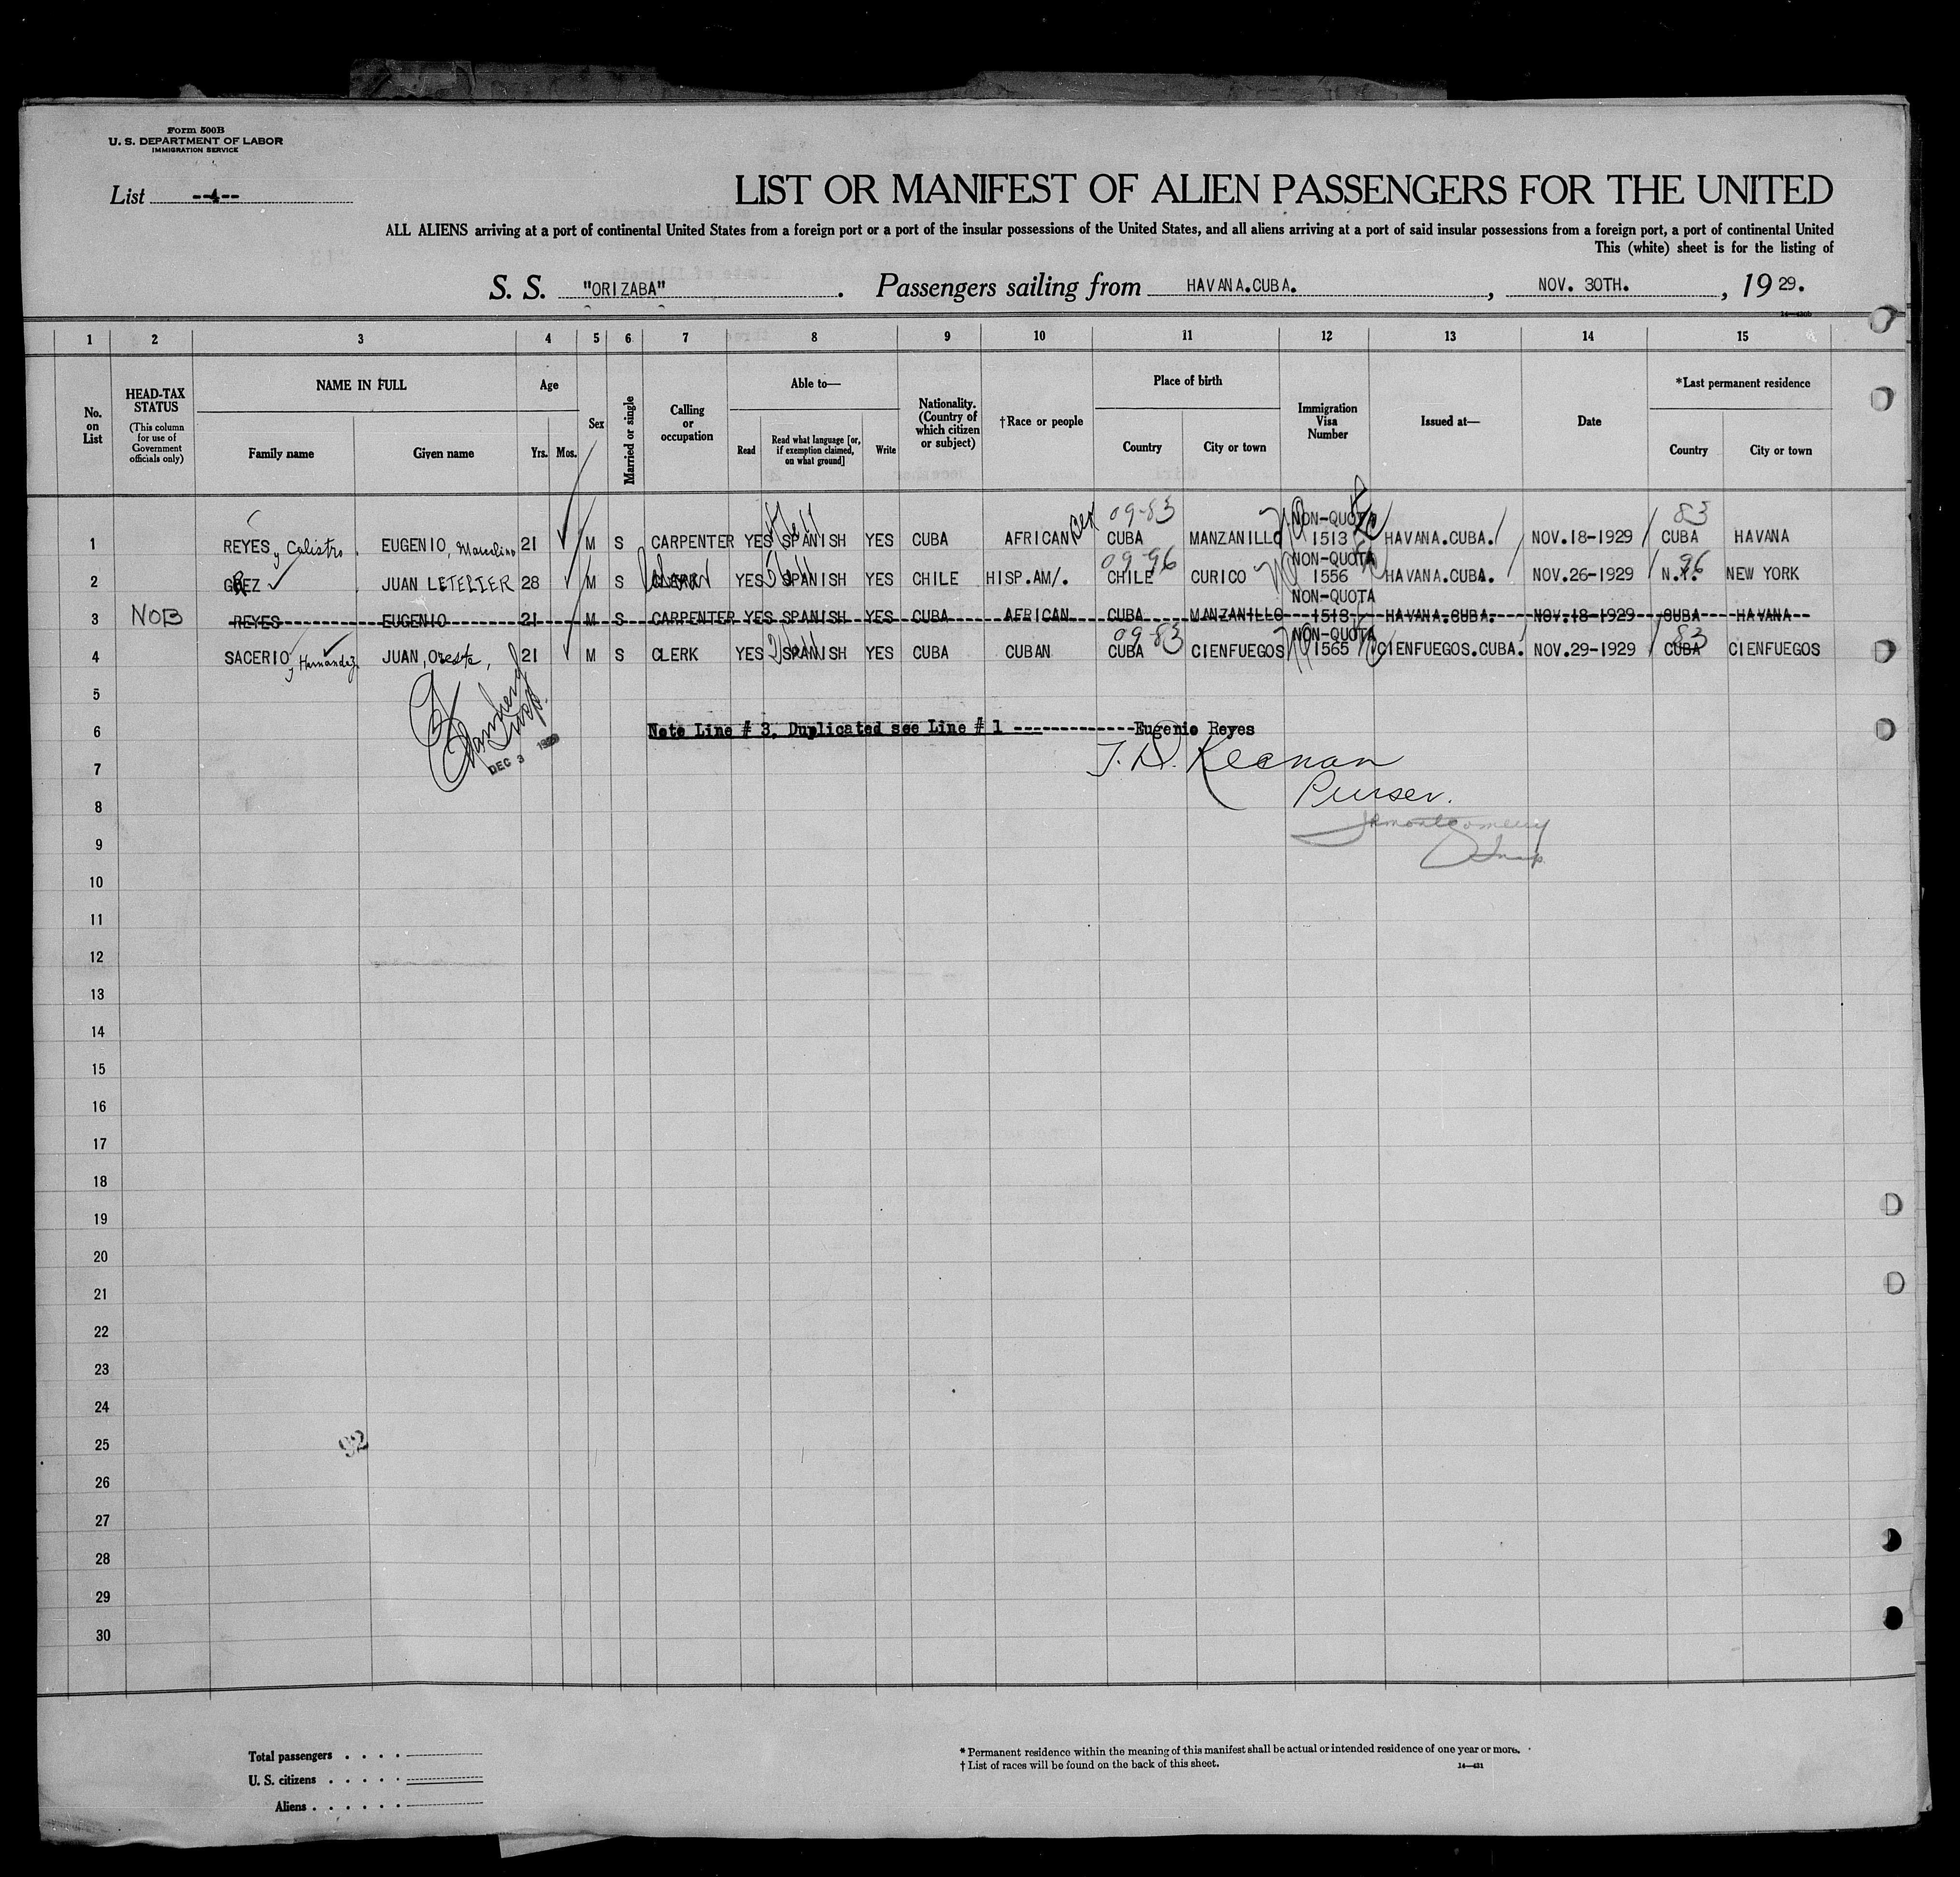 Form 500B
U. S. DEPARTMENT OF LABOR
IMMIGRATION SERVICE
List --4--
LIST OR MANIFEST OF ALIEN PASSENGERS FOR THE UNITED
ALL ALIENS arriving at a port of continental United States from a foreign port or a port of the insular possessions of the United States, and all aliens arriving at a port of said insular possessions from a foreign port, a port of continental United
This (white) sheet is for the listing of
S. S. "ORIZABA" . Passengers sailing from HAVANA.CUBA. , NOV. 30TH. , 19 29.
1 2 3 4 5 6 7 8 9 10 11 12 13 14 15
No. on List
HEAD-TAX STATUS
(This column for use of Government officials only)
NAME IN FULL
Family name Given name
Age
Yrs. Mos.
Sex
Married or single
Calling or occupation
Able to—
Read
Read what language [or, if exemption claimed, on what ground]
Write
Nationality. (Country of which citizen or subject)
†Race or people
Place of birth
Country City or town
Immigration Visa Number
Issued at—
Date
*Last permanent residence
Country City or town
09-83 NON-QUOTA 83
1 REYES y Calistro EUGENIO, Marcelino 21 M S CARPENTER YES SPANISH YES CUBA AFRICAN CUBA MANZANILLO 1513 HAVANA.CUBA. NOV.18-1929 CUBA HAVANA
09-96 NON-QUOTA 96
2 GREZ JUAN LETELIER 28 M S CLERK YES SPANISH YES CHILE HISP.AM/. CHILE CURICO 1556 HAVANA.CUBA. NOV.26-1929 N.Y. NEW YORK
NON-QUOTA
3 NOB REYES EUGENIO 21 M S CARPENTER YES SPANISH YES CUBA AFRICAN CUBA MANZANILLO 1513 HAVANA.CUBA. NOV.18-1929 CUBA HAVANA
09-83 NON-QUOTA 83
4 SACERIO y Hernandez JUAN, Oreste, 21 M S CLERK YES SPANISH YES CUBA CUBAN CUBA CIENFUEGOS 1565 CIENFUEGOS.CUBA. NOV.29-1929 CUBA CIENFUEGOS
5
6 Note Line # 3. Duplicated see Line # 1 ------------Eugenio Reyes
Insp.
DEC 3 1929
7 J. D. Keenan
8 Purser.
Montgomery
9 Insp.
10
11
12
13
14
15
16
17
18
19
20
21
22
23
24
25
92
26
27
28
29
30
Total passengers . . . .
U. S. citizens . . . . .
Aliens . . . . . .
* Permanent residence within the meaning of this manifest shall be actual or intended residence of one year or more.
† List of races will be found on the back of this sheet.
14—431